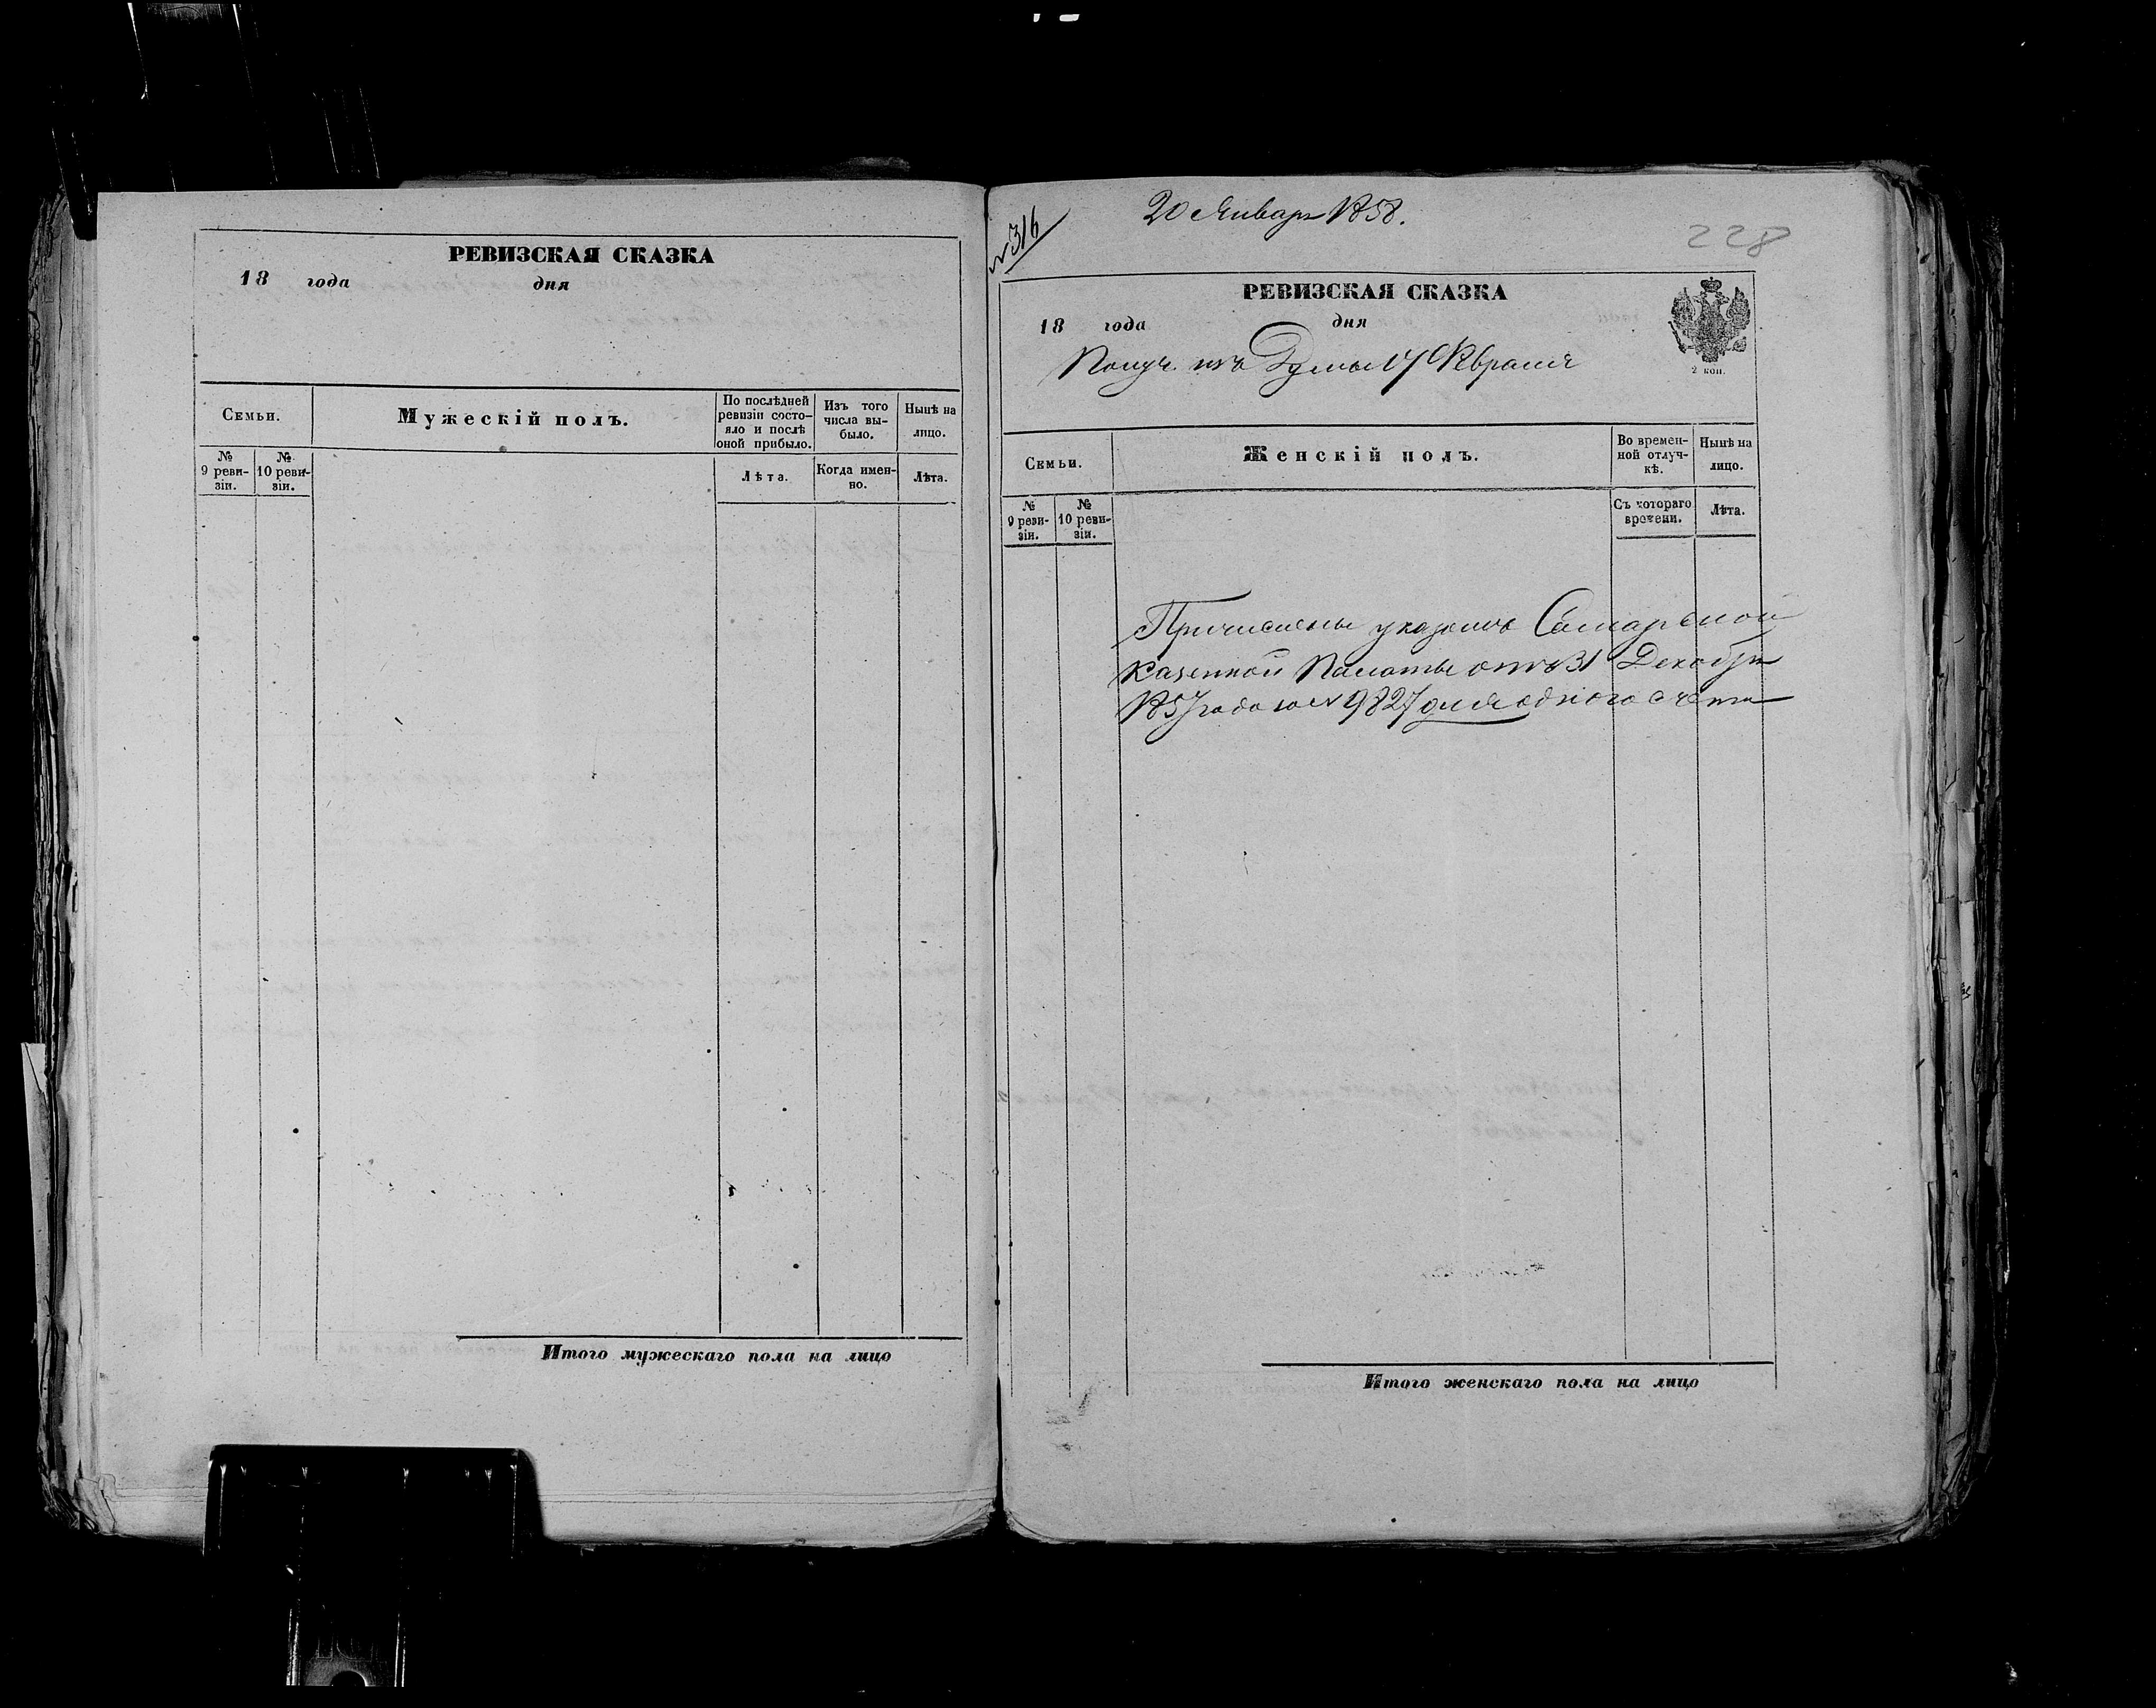 РЕВИЗСКАЯ СКАЗКА
18 года дня
Семьи.
Мужескій полъ.
По послѣдней
ревизіи состо-
яло и послѣ
оной прибыло.
Изъ того
числа вы-
было.
Нынѣ на
лицо.
№
9 реви-
зіи.
№
10 реви-
зіи.
Лѣта.
Когда имен-
но.
Лѣта.
Итого мужескаго пола на лицо
№ 316
20 Января 1858.
228
РЕВИЗСКАЯ СКАЗКА
18 года дня
2 коп.
Получ. изъ Думы 17 Февраля
Семьи.
Женскій полъ.
Во времен-
ной отлуч-
кѣ.
Нынѣ на
лицо.
№
9 реви-
зіи.
№
10 реви-
зіи.
Съ котораго
времени.
Лѣта.
Причислены указомъ Самарской
Казенной Палаты отъ 31 Декабря
1857 года за № 9827 для одного счета
Итого женскаго пола на лицо